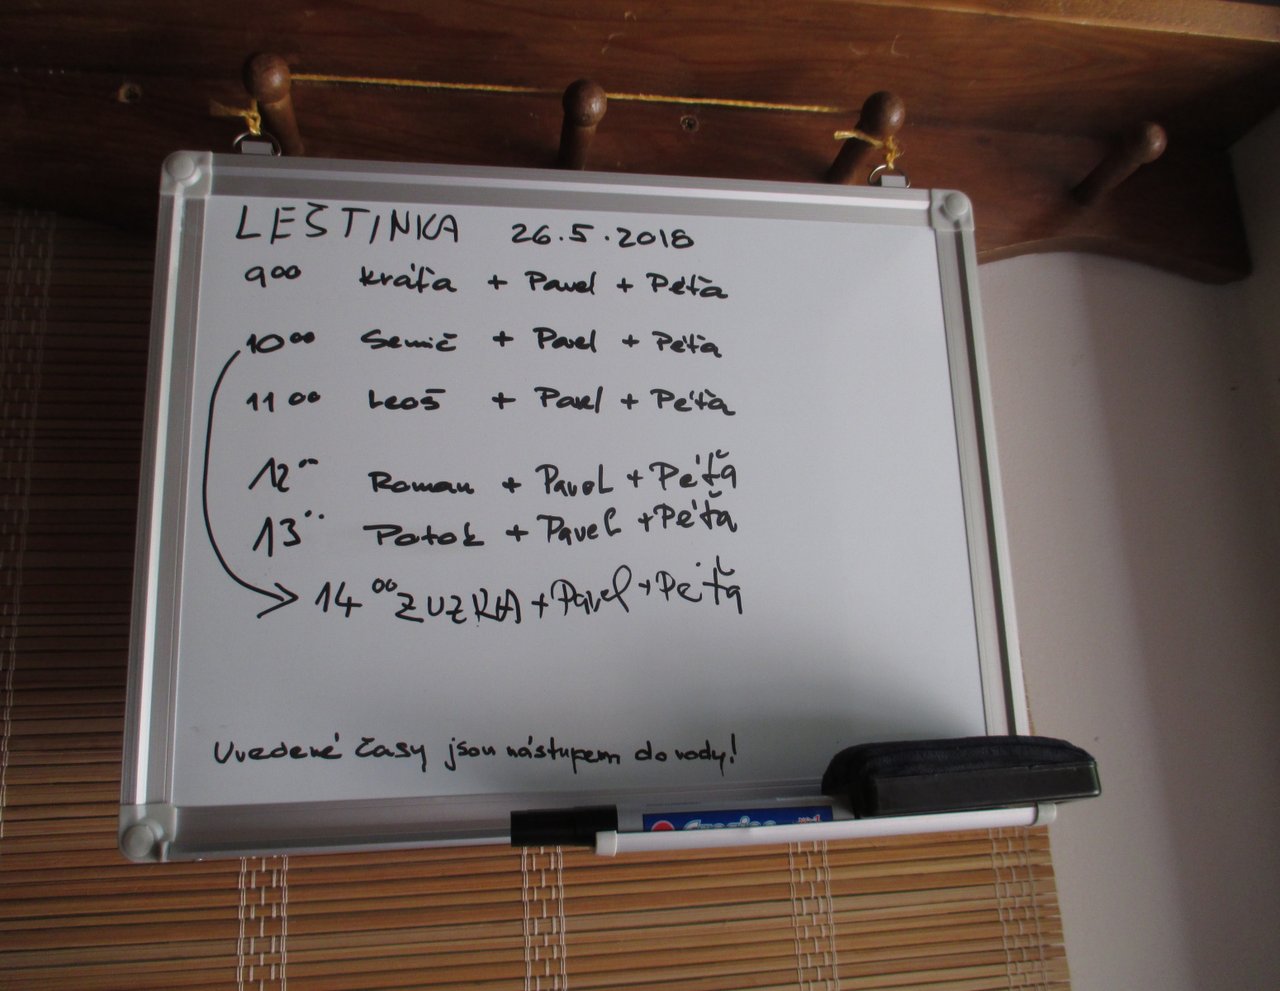 LEŠTINKA 26.5.2018
9⁰⁰ Kráťa + Pavel + Péťa
10⁰⁰ Semič + Pavel + Péťa
11⁰⁰ Leoš + Pavel + Péťa
12⁰⁰ Roman + Pavel + Péťa
13⁰⁰ Potok + Pavel + Péťa
14⁰⁰ ZUZKA + Pavel + Péťa
Uvedené časy jsou nástupem do vody!